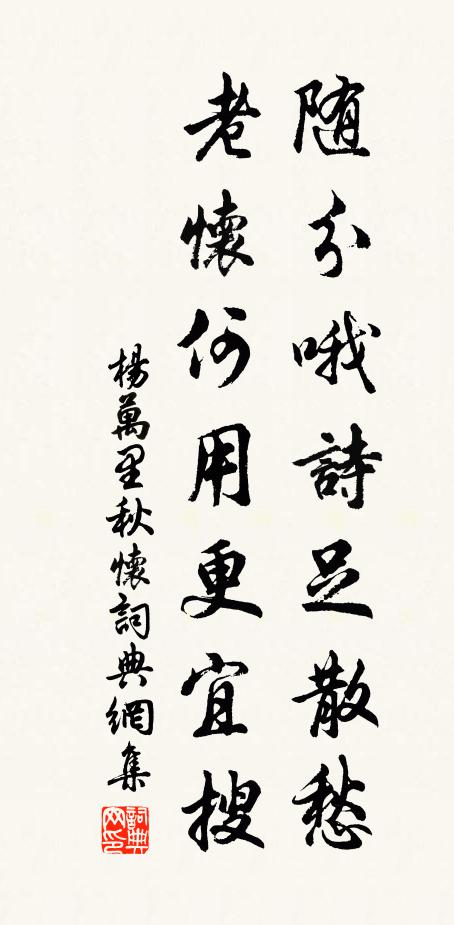 随分哦詩足散愁
老懷何用更宜搜
楊萬里秋懷詞典網集
詞典網印